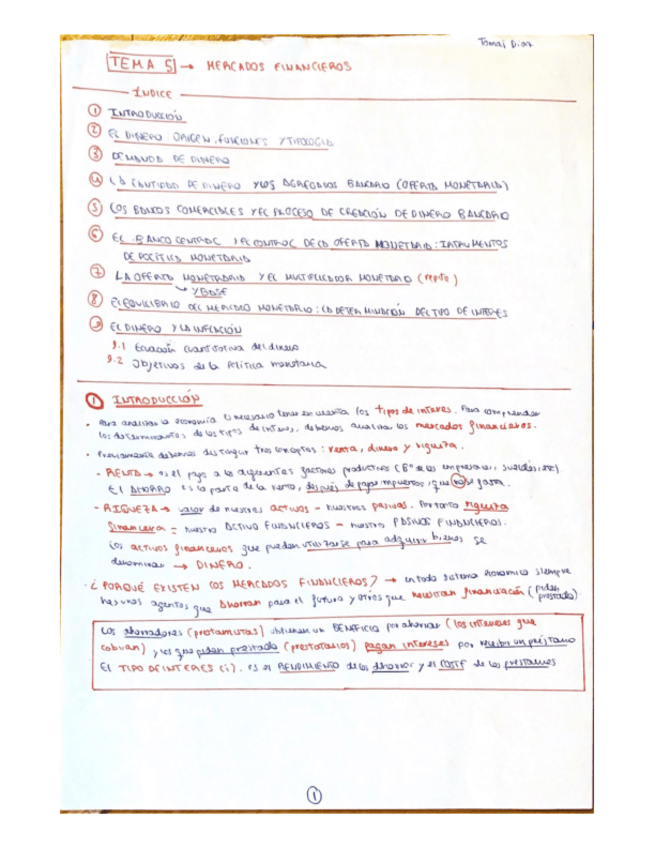 Tomás Díaz
TEMA 5 → MERCADOS FINANCIEROS
ÍNDICE
① INTRODUCCIÓN
② EL DINERO: ORIGEN, FUNCIONES Y TIPOLOGÍA
③ DEMANDA DE DINERO
④ LA CANTIDAD DE DINERO Y LOS AGREGADOS BANCARIO (OFERTA MONETARIA)
⑤ LOS BANCOS COMERCIALES Y EL PROCESO DE CREACIÓN DE DINERO BANCARIO
⑥ EL BANCO CENTRAL Y EL CONTROL DE LA OFERTA MONETARIA: INTRUMENTOS
DE POLÍTICA MONETARIA
⑦ LA OFERTA MONETARIA Y EL MULTIPLICADOR MONETARIO (repito)
↳ Y BASE
⑧ EL EQUILIBRIO DEL MERCADO MONETARIO: LA DETERMINACIÓN DEL TIPO DE INTERÉS
⑨ EL DINERO Y LA INFLACIÓN
9.1 Ecuación cuantitativa del dinero
9.2 Objetivos de la política monetaria
① INTRODUCCIÓN
· Para analizar la economía es necesario tener en cuenta los tipos de interes. Para comprender
los determinantes de los tipos de interes, debemos analizar los mercados financieros.
· Previamente debemos distinguir tres conceptos: renta, dinero y riqueza.
- RENTA → es el pago a los diferentes factores productivos (Bº de las empresarios, sueldos, etc).
El AHORRO es la parte de la renta, después de pagar impuestos, que no se gasta.
- RIQUEZA → valor de nuestros activos - nuestros pasivos. Por tanto riqueza
financiera = nuestro ACTIVO FINANCIEROS - nuestro PASIVOS FINANCIEROS.
Los activos financieros que pueden utilizarse para adquirir bienes se
denominan → DINERO.
· ¿PORQUÉ EXISTEN LOS MERCADOS FINANCIEROS? → en todo sistema económico siempre
hay unos agentes que ahorran para el futuro y otros que necesitan financiación (piden prestado)
Los ahorradores (prestamistas) obtienen un BENEFICIO por ahorrar (los intereses que
cobran) y los que piden prestado (prestatarios) pagan intereses por recibir un préstamo
EL TIPO DE INTERES (i). es el RENDIMIENTO de los ahorros y el COSTE de los prestamos
1